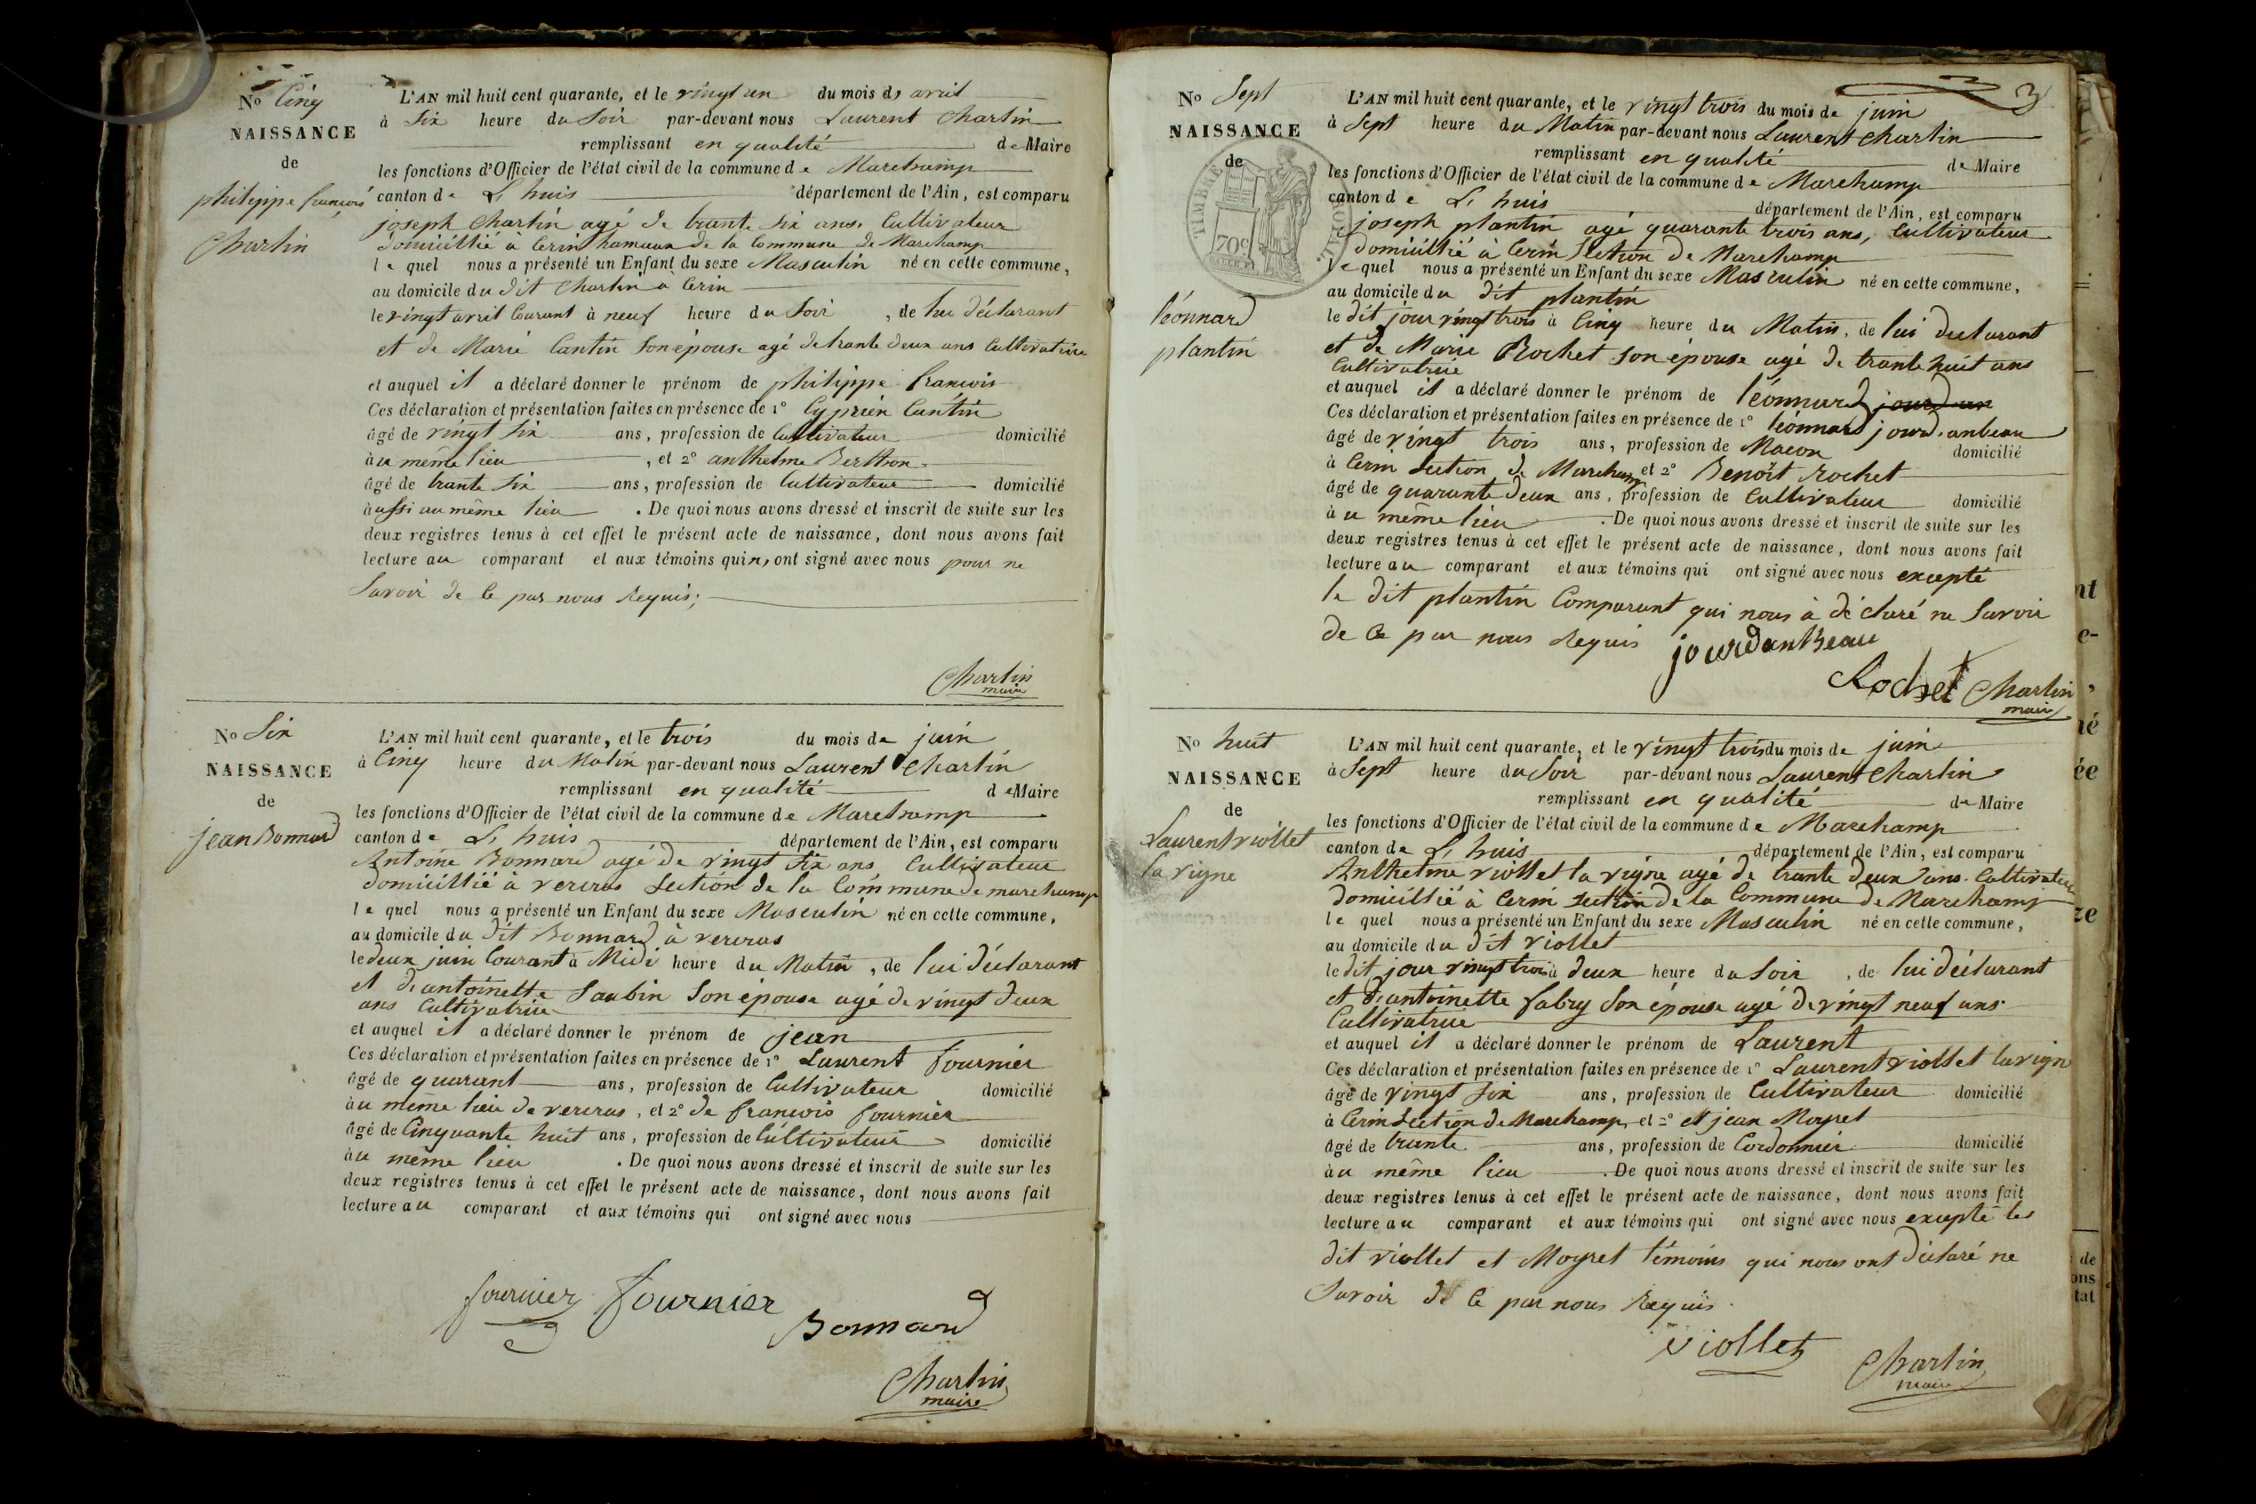 No Cinq
NAISSANCE
de
philippe francois
Charlin
L'AN mil huit cent quarante, et le vingt un du mois de avril
à Six heure du Soir par-devant nous Laurent Charlin
remplissant en qualité de Maire
les fonctions d'Officier de l'état civil de la commune de Marchamp
canton de L'huis département de l'Ain, est comparu
joseph Charlin agé de trante six ans, Cultivateur
domicillié à Cerin hameaux de la Commune de Marchamp
le quel nous a présenté un Enfant du sexe Masculin né en cette commune,
au domicile du dit Charlin a Cerin
le vingt avril Courant à neuf heure du Soir, de lui déclarant
et de Marie Cantin son épouse agé de trante deux ans Cultivatrice
et auquel il a déclaré donner le prénom de philippe francois
Ces déclaration et présentation faites en présence de 1º Cyprien Cantin
âgé de vingt six ans, profession de Cultivateur domicilié
à u même lieu, et 2º anthelme Berthon
âgé de trante six ans, profession de Cultivateur domicilié
à ussi au même lieu. De quoi nous avons dressé et inscrit de suite sur les
deux registres tenus à cet effet le présent acte de naissance, dont nous avons fait
lecture au comparant et aux témoins qui n'ont signé avec nous pour ne
Savoir de Ce par nous Requis;
Charlin
maire
No Six
NAISSANCE
de
jean Bonnard
L'AN mil huit cent quarante, et le trois du mois de juin
à Cinq heure du Matin par-devant nous Laurent Charlin
remplissant en qualité de Maire
les fonctions d'Officier de l'état civil de la commune de Marchamp
canton de L'huis département de l'Ain, est comparu
Antoine Bonnard agé de vingt six ans Cultivateur
domicillié à vercras section de la Commune de marchamp
le quel nous a présenté un Enfant du sexe Masculin né en cette commune,
au domicile du dit Bonnard à vercras
le deux juin Courant à Midi heure du Matin, de lui déclarant
et d'antoinette Saubin son épouse agé de vingt deux
ans Cultivatrice
et auquel il a déclaré donner le prénom de jean
Ces déclaration et présentation faites en présence de 1º Laurent fournier
âgé de quarant ans, profession de Cultivateur domicilié
à u même lieu de vercras, et 2º de francois fournier
âgé de Cinquante huit ans, profession de Cultivateur domicilié
à u même lieu. De quoi nous avons dressé et inscrit de suite sur les
deux registres tenus à cet effet le présent acte de naissance, dont nous avons fait
lecture au comparant et aux témoins qui ont signé avec nous
fournier fournier
Bonnard
Charlin
maire
3
No Sept
NAISSANCE
de
TIMBRE ROYAL
70c
léonnard
plantin
L'AN mil huit cent quarante, et le vingt trois du mois de juin
à Sept heure du Matin par-devant nous Laurent Charlin
remplissant en qualité de Maire
les fonctions d'Officier de l'état civil de la commune de Marchamp
canton de L'huis département de l'Ain, est comparu
joseph plantin agé quarante trois ans, Cultivateur
domicillié à Cerin Section de Marchamp
le quel nous a présenté un Enfant du sexe Masculin né en cette commune,
au domicile du dit plantin
le dit jour vingt trois à Cinq heure du Matin, de lui déclarant
et de Marie Rochet son épouse agé de trante huit ans
Cultivatrice
et auquel il a déclaré donner le prénom de léonnard jourdan
Ces déclaration et présentation faites en présence de 1º léonnard jourdanbeau
âgé de vingt trois ans, profession de Macon domicilié
à Cerin section de Marchamp et 2º Benoît Rochet
âgé de quarante deux ans, profession de Cultivateur domicilié
à u même lieu. De quoi nous avons dressé et inscrit de suite sur les
deux registres tenus à cet effet le présent acte de naissance, dont nous avons fait
lecture au comparant et aux témoins qui ont signé avec nous excepté
le dit plantin Comparant qui nous à déclaré ne Savoir
de Ce par nous Requis jourdanBeau
Rochet Charlin
maire
No huit
NAISSANCE
de
Laurent viollet
lavigne
L'AN mil huit cent quarante, et le vingt trois du mois de juin
à Sept heure du Soir par-devant nous Laurent Charlin
remplissant en qualité de Maire
les fonctions d'Officier de l'état civil de la commune de Marchamp
canton de L'huis département de l'Ain, est comparu
Anthelme viollet la vigne agé de trante deux ans Cultivateur
domicillié à Cerin section de la Commune de Marchamp
le quel nous a présenté un Enfant du sexe Masculin né en cette commune,
au domicile du dit viollet
le dit jour vingt trois à deux heure du Soir, de lui déclarant
et d'antoinette fabry son épouse agé de vingt neuf ans
Cultivatrice
et auquel il a déclaré donner le prénom de Laurent
Ces déclaration et présentation faites en présence de 1º Laurent viollet lavigne
âgé de vingt six ans, profession de Cultivateur domicilié
à Cerin Section de Marchamp, et 2º et jean Moyret
âgé de trante ans, profession de Cordonnier domicilié
à u même lieu. De quoi nous avons dressé et inscrit de suite sur les
deux registres tenus à cet effet le présent acte de naissance, dont nous avons fait
lecture au comparant et aux témoins qui ont signé avec nous excepté les
dit viollet et Moyret témoins qui nous ont déclaré ne
Savoir de Ce par nous Requis.
viollet
Charlin
maire